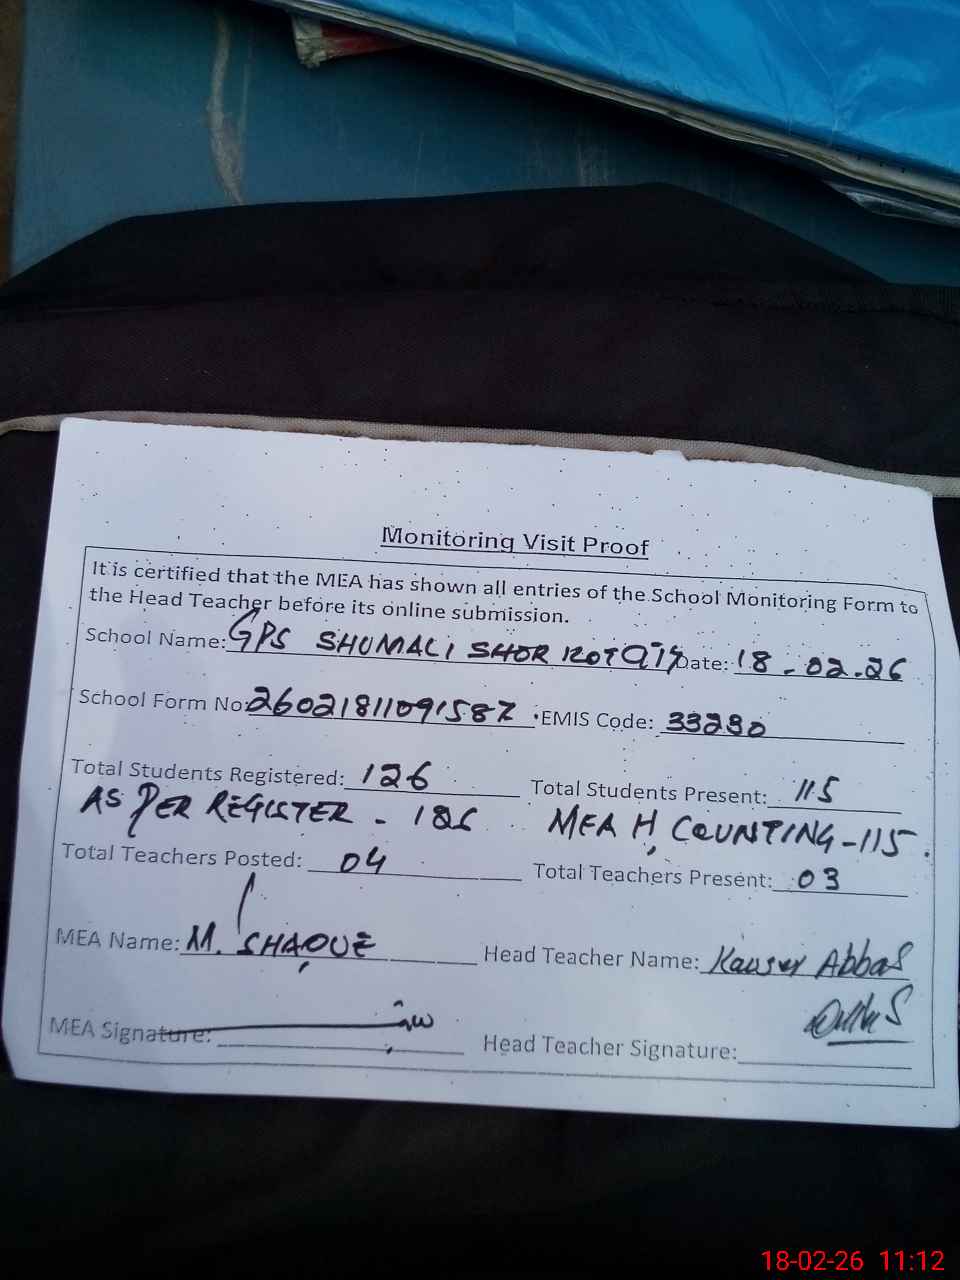 Monitoring Visit Proof
It is certified that the MEA has shown all entries of the School Monitoring Form to
the Head Teacher before its online submission.
School Name: GPS SHUMALI SHOR KOT Date: 18-02-26
School Form No: 26021811091587 EMIS Code: 33230
Total Students Registered: 126 Total Students Present: 115
AS PER REGISTER - MEA H, COUNTING-115.
Total Teachers Posted: 04 Total Teachers Present: 03
MEA Name: M. SHAQUE Head Teacher Name: Kausar Abbas
MEA Signature: Head Teacher Signature:
18-02-26 11:12